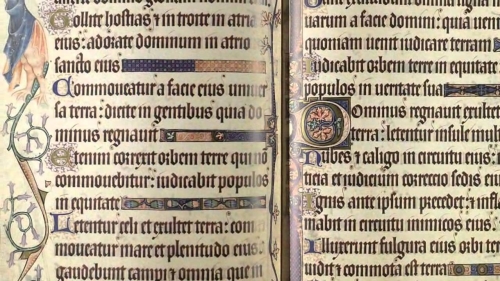 Tollite hostias et introite in atria
eius: adorate dominum in atrio
sancto eius
Commoueatur a facie eius uniuer
sa terra: dicite in gentibus quia do
minus regnauit
Etenim correxit orbem terre qui nō
commouebitur: iudicabit populos
in equitate
Letentur celi et exultet terra: com
moueatur mare et plenitudo eius
gaudebunt campi et omnia que in
uarum a facie domini: quia uenit
quoniam uenit iudicare terram
Iudicabit orbem terre in equitate
populos in ueritate sua
Dominus regnauit exultet
terra: letentur insule mul
Nubes et caligo in circuitu eius:
cia et iudicium correctio sedis eius
Ignis ante ipsum precedet: et infla
mabit in circuitu inimicos eius
Illuxerunt fulgura eius orbi ter
uidit et commota est terra